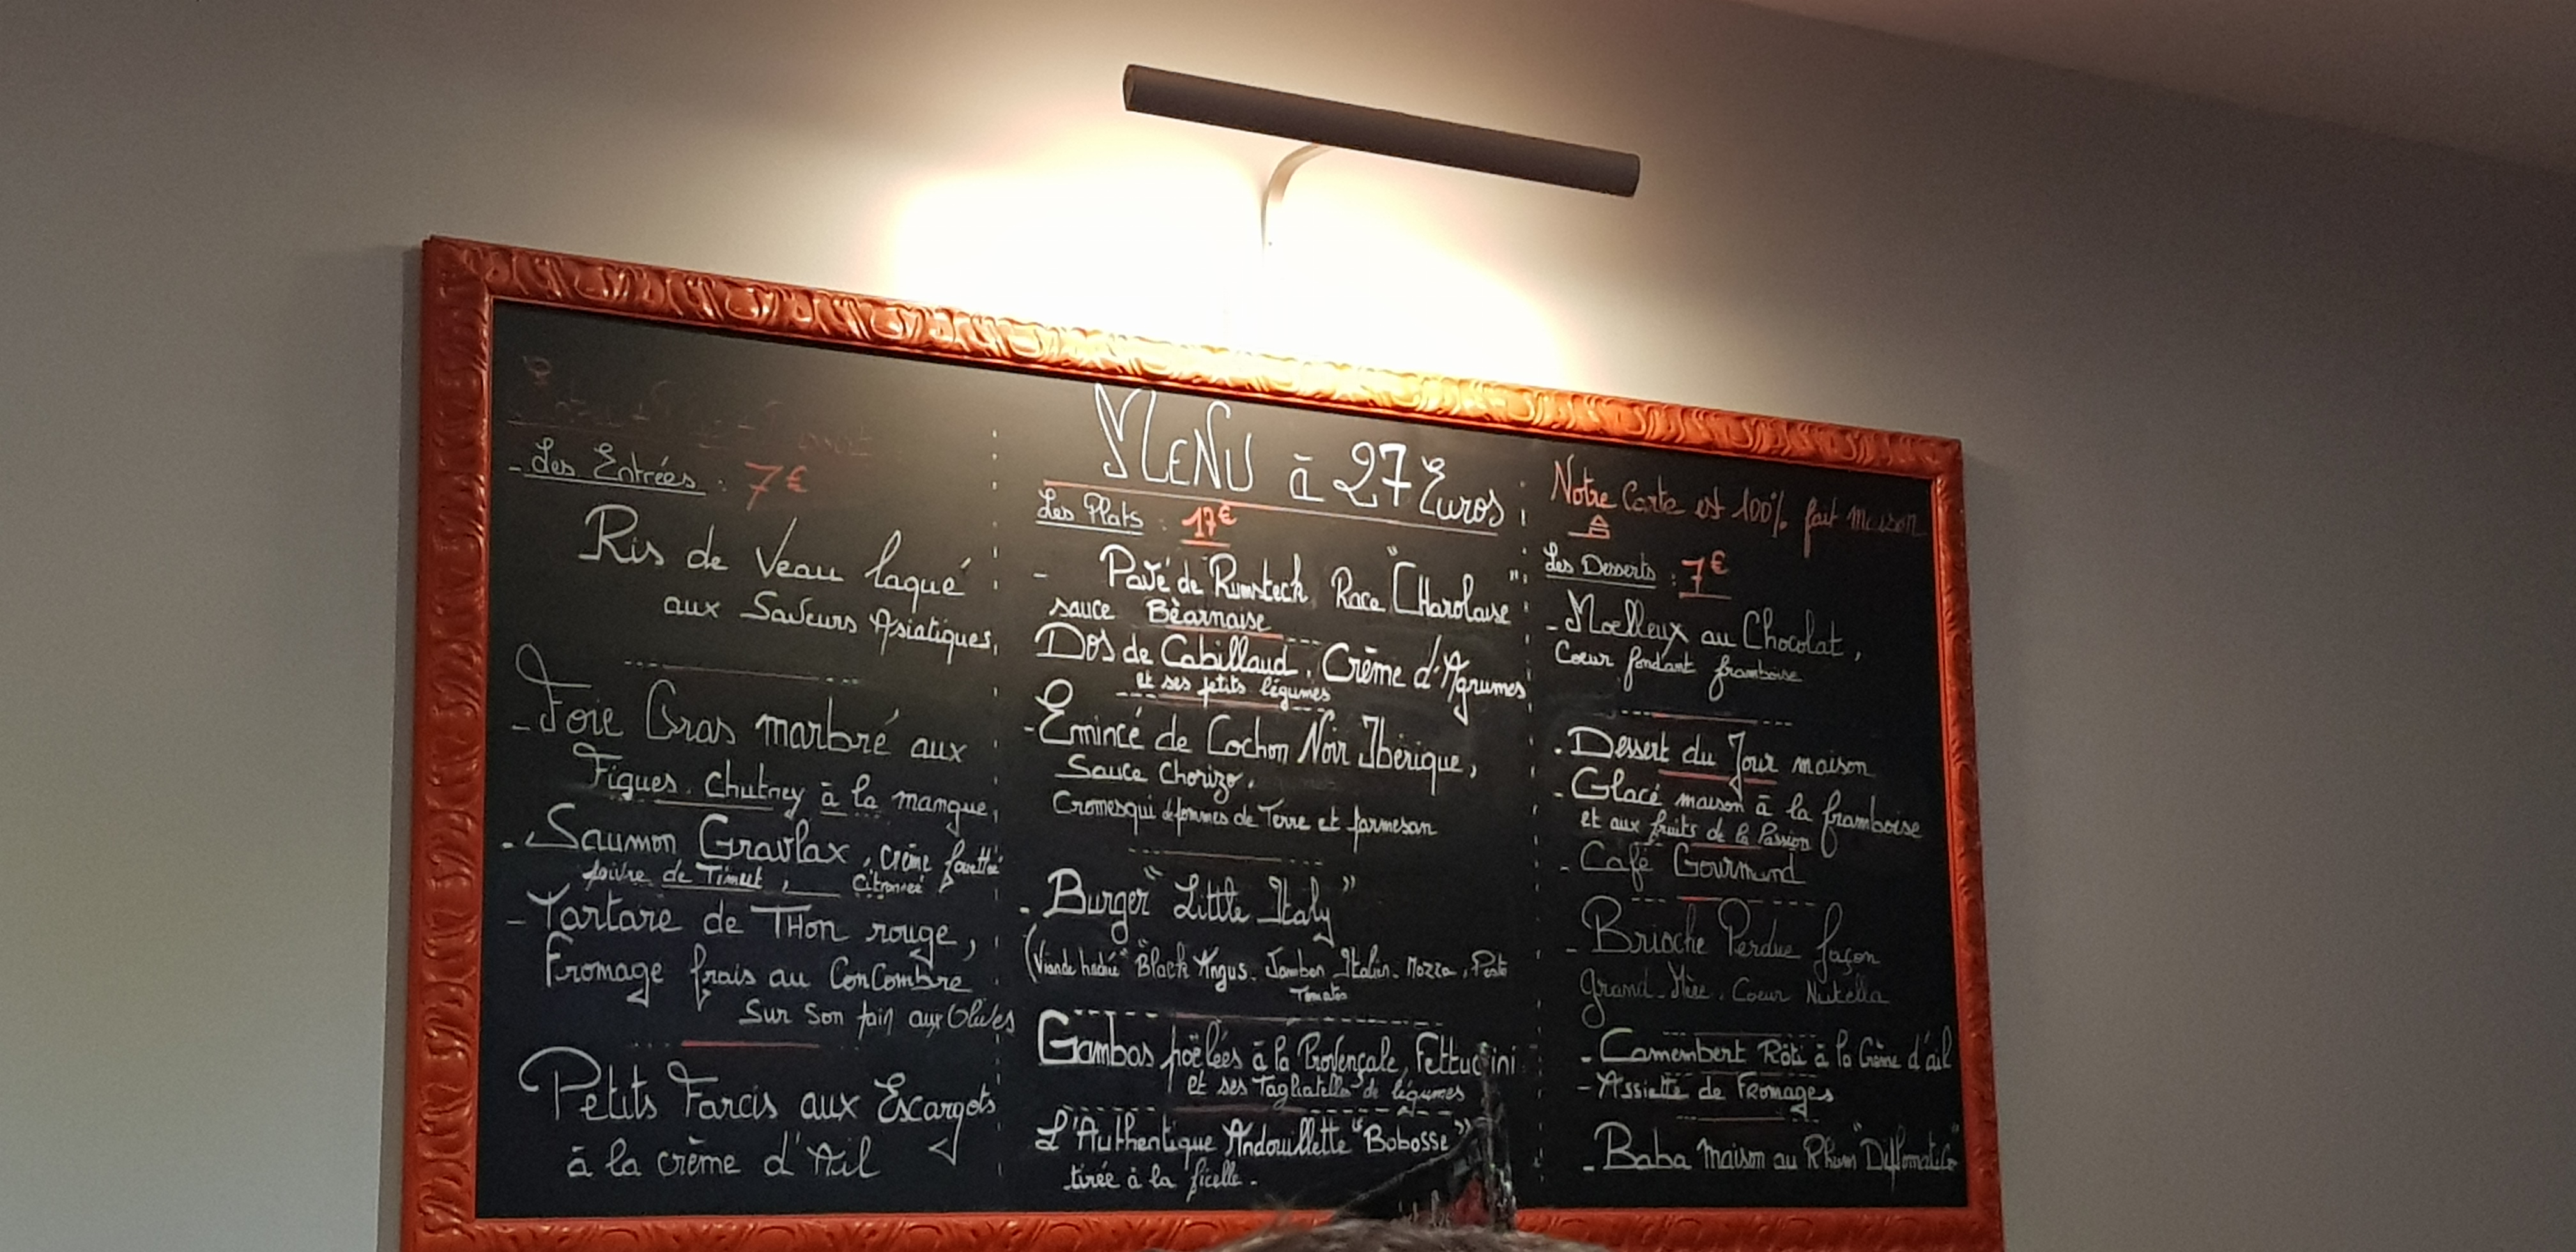 - Les Entrées : 7€
Ris de Veau laqué
aux Saveurs Asiatiques,
- Foie Gras marbré aux
Figues. Chutney à la mangue,
- Saumon Gravlax, crème fouettée
poivre de Timut, citronnée
- Tartare de THon rouge,
Fromage frais au ConCombre
Sur Son pain aux Olives
Petits Farcis aux Escargots
à la crème d'Ail
MENU à 27 Euros
Les Plats : 17€
- Pavé de Rumsteck Race "CHarolaise"
sauce Béarnaise
Dos de Cabillaud. Crème d'Agrumes
et ses petits légumes
- Emincé de Cochon Noir Ibérique,
Sauce Chorizo.
Cromesqui de pommes de Terre et parmesan
- Burger "Little Italy"
(Viande haché "Black Angus. Jambon Italien. Mozza, Pesto
Tomates
Gambas poëlées à la Provençale, Fettuccini
et ses Tagliatelles de légumes
L'Authentique Andouillette "Bobosse"
tirée à la ficelle.
Notre Carte est 100% fait maison
Les Desserts : 7€
- Moelleux au Chocolat,
Coeur fondant framboise
- Dessert du Jour maison
- Glacé maison à la framboise
et aux fruits de la Passion
- Café Gourmand
- Brioche Perdue façon
Grand-Mère. Coeur Nutella
- Camembert Rôti à la Crème d'ail
- Assiette de Fromages
- Baba maison au Rhum "Diplomatico"